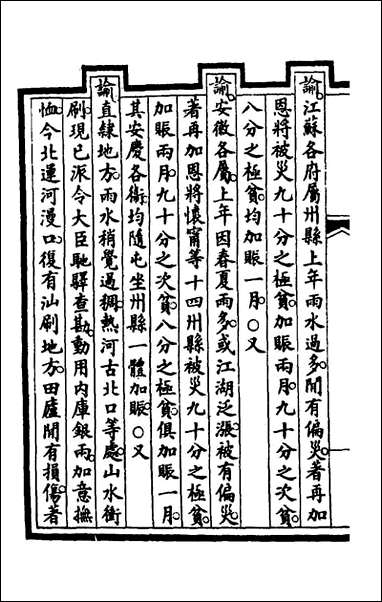 諭。江蘇各府屬州縣上年雨水過多。間有偏災。著再加
恩將被災九十分之極貧。加賑兩月。九十分之次貧。
八分之極貧。均加賑一月。○又
諭。安徽各屬。上年因春夏雨多。或江湖泛漲。被有偏災。
著再加恩將懷甯等十四州縣被災九十分之極貧。
加賑兩月。九十分之次貧。八分之極貧。俱加賑一月。
其安慶各衞。均隨屯坐州縣一體加賑。○又
諭。直隸地方。雨水稍覺過稠。熱河古北口等處。山水衝
刷。現已派令大臣馳驛查勘。動用內庫銀兩。加意撫
恤。今北運河漫口。復有汕刷地方。田廬間有損傷。著